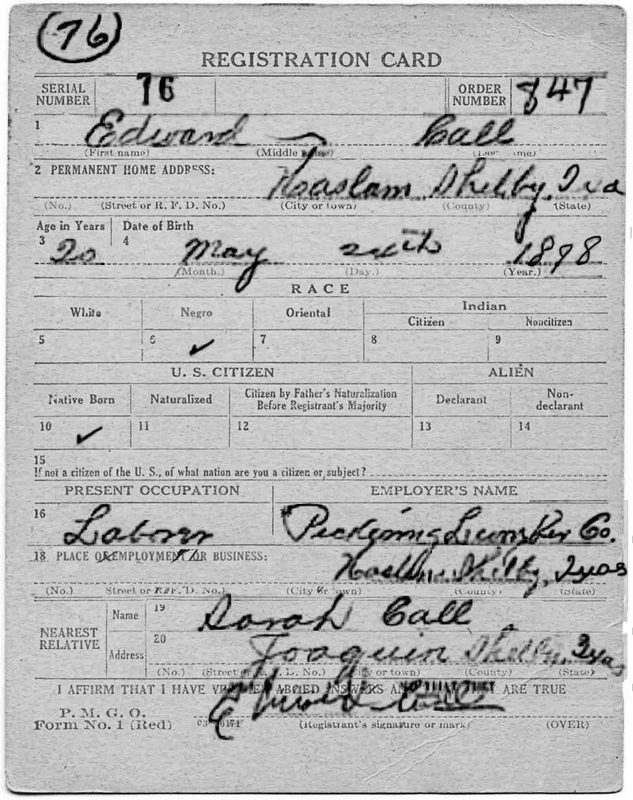 (76)
REGISTRATION CARD
SERIAL NUMBER 76 ORDER NUMBER 847
1 Edward — Call
(First name) (Middle name) (Last name)
2 PERMANENT HOME ADDRESS: Haslam Shelby Texa
(No.) (Street or R. F. D. No.) (City or town) (County) (State)
Age in Years Date of Birth
3 20 4 May 1898
(Month.) (Day.) (Year.)
RACE
White Negro Oriental Indian
Citizen Noncitizen
5 6 ✓ 7 8 9
U. S. CITIZEN ALIEN
Native Born Naturalized Citizen by Father's Naturalization Before Registrant's Majority Declarant Non-declarant
10 ✓ 11 12 13 14
15
If not a citizen of the U. S., of what nation are you a citizen or subject?
PRESENT OCCUPATION EMPLOYER'S NAME
16 Laborer Pickering Lumber Co.
18 PLACE OF EMPLOYMENT OR BUSINESS:
Haslam Shelby Texas
(No.) Street or R.F.D. No.) (City or town) (County) (State)
NEAREST RELATIVE
Name 19 Sarah Call
Address 20 Joaquin Shelby Texas
(No.) (Street or R. F. D. No.) (City or town) (County) (State)
I AFFIRM THAT I HAVE VERIFIED ABOVE ANSWERS AND THAT THEY ARE TRUE
P. M. G. O.
Form No. 1 (Red) Edward Call
(Registrant's signature or mark) (OVER)